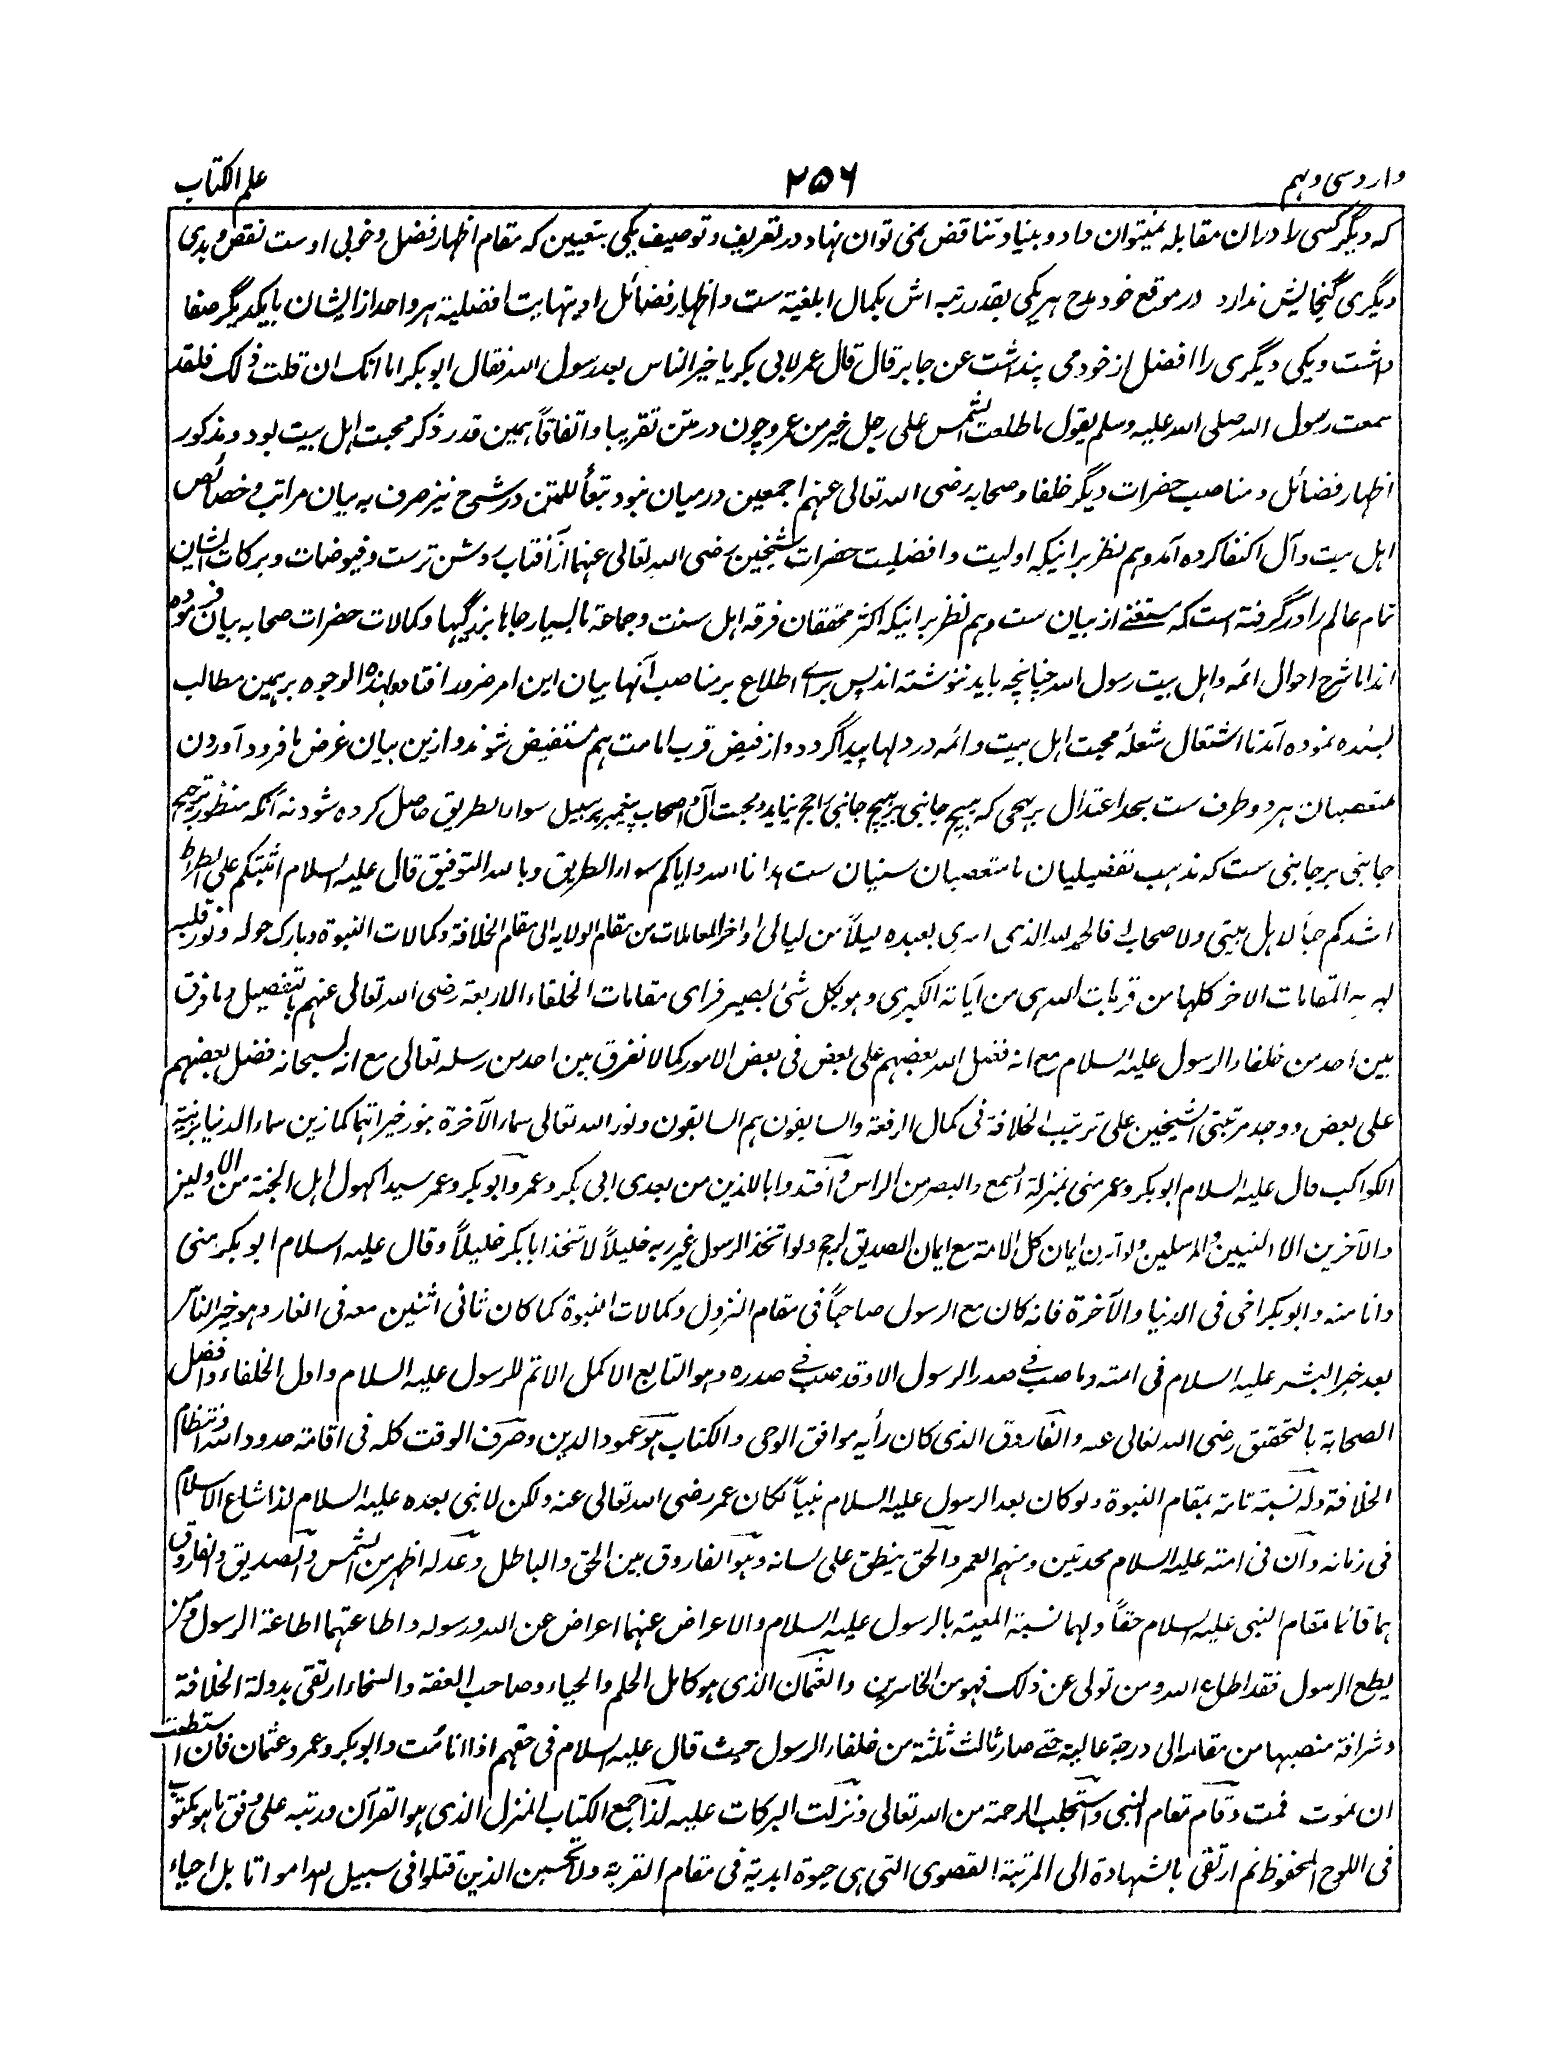 وارد سی و نهم ۲۵۶ علم الکتاب
که دیگر کسی را دران مقابله نمیتوان داد و بنیاد تناقض نمی توان نهاد در تعریف و توصیف یکی بتعیین که مقام اظهار فضل و خوبی اوست نقص و بدی
دیگری گنجایش ندارد در موقع خود مدح هریکی بقدر رتبه اش بکمال ابلغیته ست و اظهار فضائل او بنهایت افضلیة هر واحد از ایشان با یکدیگر صفا
داشت و یکی دیگری را افضل از خود می پنداشت عن جابر قال قال عمر لابی بکر یا خیر الناس بعد رسول الله فقال ابو بکر اما انک ان قلت ذلک فلقد
سمعت رسول الله صلی الله علیه وسلم یقول ما طلعت الشمس علی رجل خیر من عمر و چون در متن تقریبا و اتفاقاً همین قدر ذکر محبت اهل بیت بود و مذکور
اظهار فضائل و مناصب حضرات دیگر خلفا و صحابه رضی الله تعالی عنهم اجمعین درمیان نبود تبعاً للمتن در شرح نیز صرف به بیان مراتب و خصائص
اهل بیت و آل اکتفا کرده آمد و هم نظر برانیکه اولیت و افضلیت حضرات شیخین رضی الله تعالی عنهما از آفتاب روشن ترست و فیوضات و برکات ایشان
تمام عالم را در گرفته است که مستغنی از بیان ست و هم نظر برانیکه اکثر محققان فرقه اهل سنت و جماعة بسیار جاها بزرگیها و کمالات حضرات صحابه بیان فرموده
اند اما شرح احوال ائمه و اهل بیت رسول الله چنانچه باید ننوشته اند پس برای اطلاع بر مناصب آنها بیان این امر ضرور افتاد و لهذه الوجوه بر همین مطالب
بسنده نموده آمد تا اشتعال شعلهٔ محبت اهل بیت و ائمه در دلها پیدا گردد و از فیض قرب امامت هم مستفیض شوند و ازین بیان غرض ما فرود آوردن
متعصبان هر دو طرف ست بحد اعتدال بر نهجی که هیچ جانبی بر هیچ جانبی راجح نیاید و محبت آل و اصحاب پیغمبر بر سبیل سواء الطریق حاصل کرده شود نه آنکه منظور ترجیح
جانبی بر جانبی ست که مذهب تفضیلیان یا متعصبان سنیان ست هدانا الله و ایاکم سواء الطریق و بالله التوفیق قال علیه السلام اثبتکم علی الصراط
اشدکم حباً لاهل بیتی و لاصحابی فالحمد لله الذی اسری بعبده لیلاً من لیالی اواخر المعاملات من مقام الولایه الی مقام الخلافة و کمالات النبوة و بارک حوله و نور قلبه
لیریه المقامات الاخر کلها من قربات الله سری من آیاته الکبری و هو بکل شئ بصیر فرای مقامات الخلفاء الاربعة رضی الله تعالی عنهم بالتفصیل و ما فرق
بین احد من خلفاء الرسول علیه السلام مع انه فضل الله بعضهم علی بعض فی بعض الامور کما لا نفرق بین احد من رسله تعالی مع انه سبحانه فضل بعضهم
علی بعض و وجد مرتبتی الشیخین علی ترتیب الخلافة فی کمال الرفعة و السابقون هم السابقون و نور الله تعالی سماء الآخرة بنور خیراتهما کما زین سماء الدنیا بزینة
الکواکب قال علیه السلام ابو بکر و عمر منی بمنزلة السمع و البصر من الراس و اقتدوا باللذین من بعدی ابی بکر و عمر و ابو بکر و عمر سیدا کهول اهل الجنة من الاولین
و الآخرین الا النبیین و المرسلین و لو اتزن ایمان کل الامة مع ایمان الصدیق لرجح و لو اتخذ الرسول غیر ربه خلیلاً لاتخذ ابا بکر خلیلاً و قال علیه السلام ابو بکر منی
و انا منه و ابو بکر اخی فی الدنیا و الآخرة فانه کان مع الرسول صاحباً فی مقام النزول و کمالات النبوة کما کان ثانی اثنین معه فی الغار و هو خیر الناس
بعد خیر البشر علیه السلام فی امته و ما صب فی صدر الرسول الا و قد صب فی صدره و هو التابع الاکمل الاتم للرسول علیه السلام و اول الخلفاء و افضل
الصحابة بالتحقیق رضی الله تعالی عنه و الفاروق الذی کان رأیه موافق الوحی و الکتاب هو عمود الدین و صرف الوقت کله فی اقامة حدود الله و انتظام
الخلافة و له نسبة تامة بمقام النبوة و لو کان بعد الرسول علیه السلام نبیاً لکان عمر رضی الله تعالی عنه و لکن لا نبی بعده علیه السلام لذا شاع الاسلام
فی زمانه و ان فی امته علیه السلام محدثین و منهم العمر و الحق ینطق علی لسانه و هو الفاروق بین الحق و الباطل و عدله اظهر من الشمس و الصدیق و الفاروق
هما قاما مقام النبی علیه السلام حقاً و لهما نسبة المعیة بالرسول علیه السلام و الاعراض عنهما اعراض عن الله و رسوله و اطاعتهما اطاعة الرسول و من
یطع الرسول فقد اطاع الله و من تولی عن ذلک فهو من الخاسرین و العثمان الذی هو کامل الحلم و الحیاء و صاحب العفة و السخاء ارتقی بدولة الخلافة
و شرافة منصبها من مقامه الی درجة عالیة حتی صار ثالث ثلثة من خلفاء الرسول حیث قال علیه السلام فی حقهم اذا انا مت و ابو بکر و عمر و عثمان فان استطعت
ان تموت فمت و قام مقام النبی و استجلب الرحمة من الله تعالی و نزلت البرکات علیه لذا جمع الکتاب المنزل الذی هو القرآن و رتبه علی وفق ما هو مکتوب
فی اللوح المحفوظ ثم ارتقی بالشهادة الی المرتبة القصوی التی هی حیوة ابدیة فی مقام القربة و لا تحسبن الذین قتلوا فی سبیل الله امواتا بل احیاء